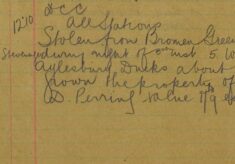 12.10
DCC
All Stations
Stolen from Bromen Green
during night of inst 5 W
Aylesbury Ducks about
grown the property of
D. Perring value